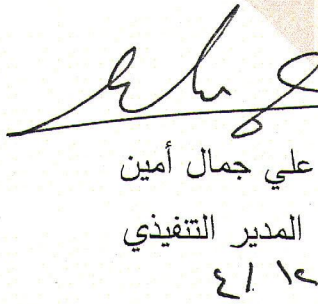 علي جمال أمين
المدير التنفيذي
١٢ / ٤